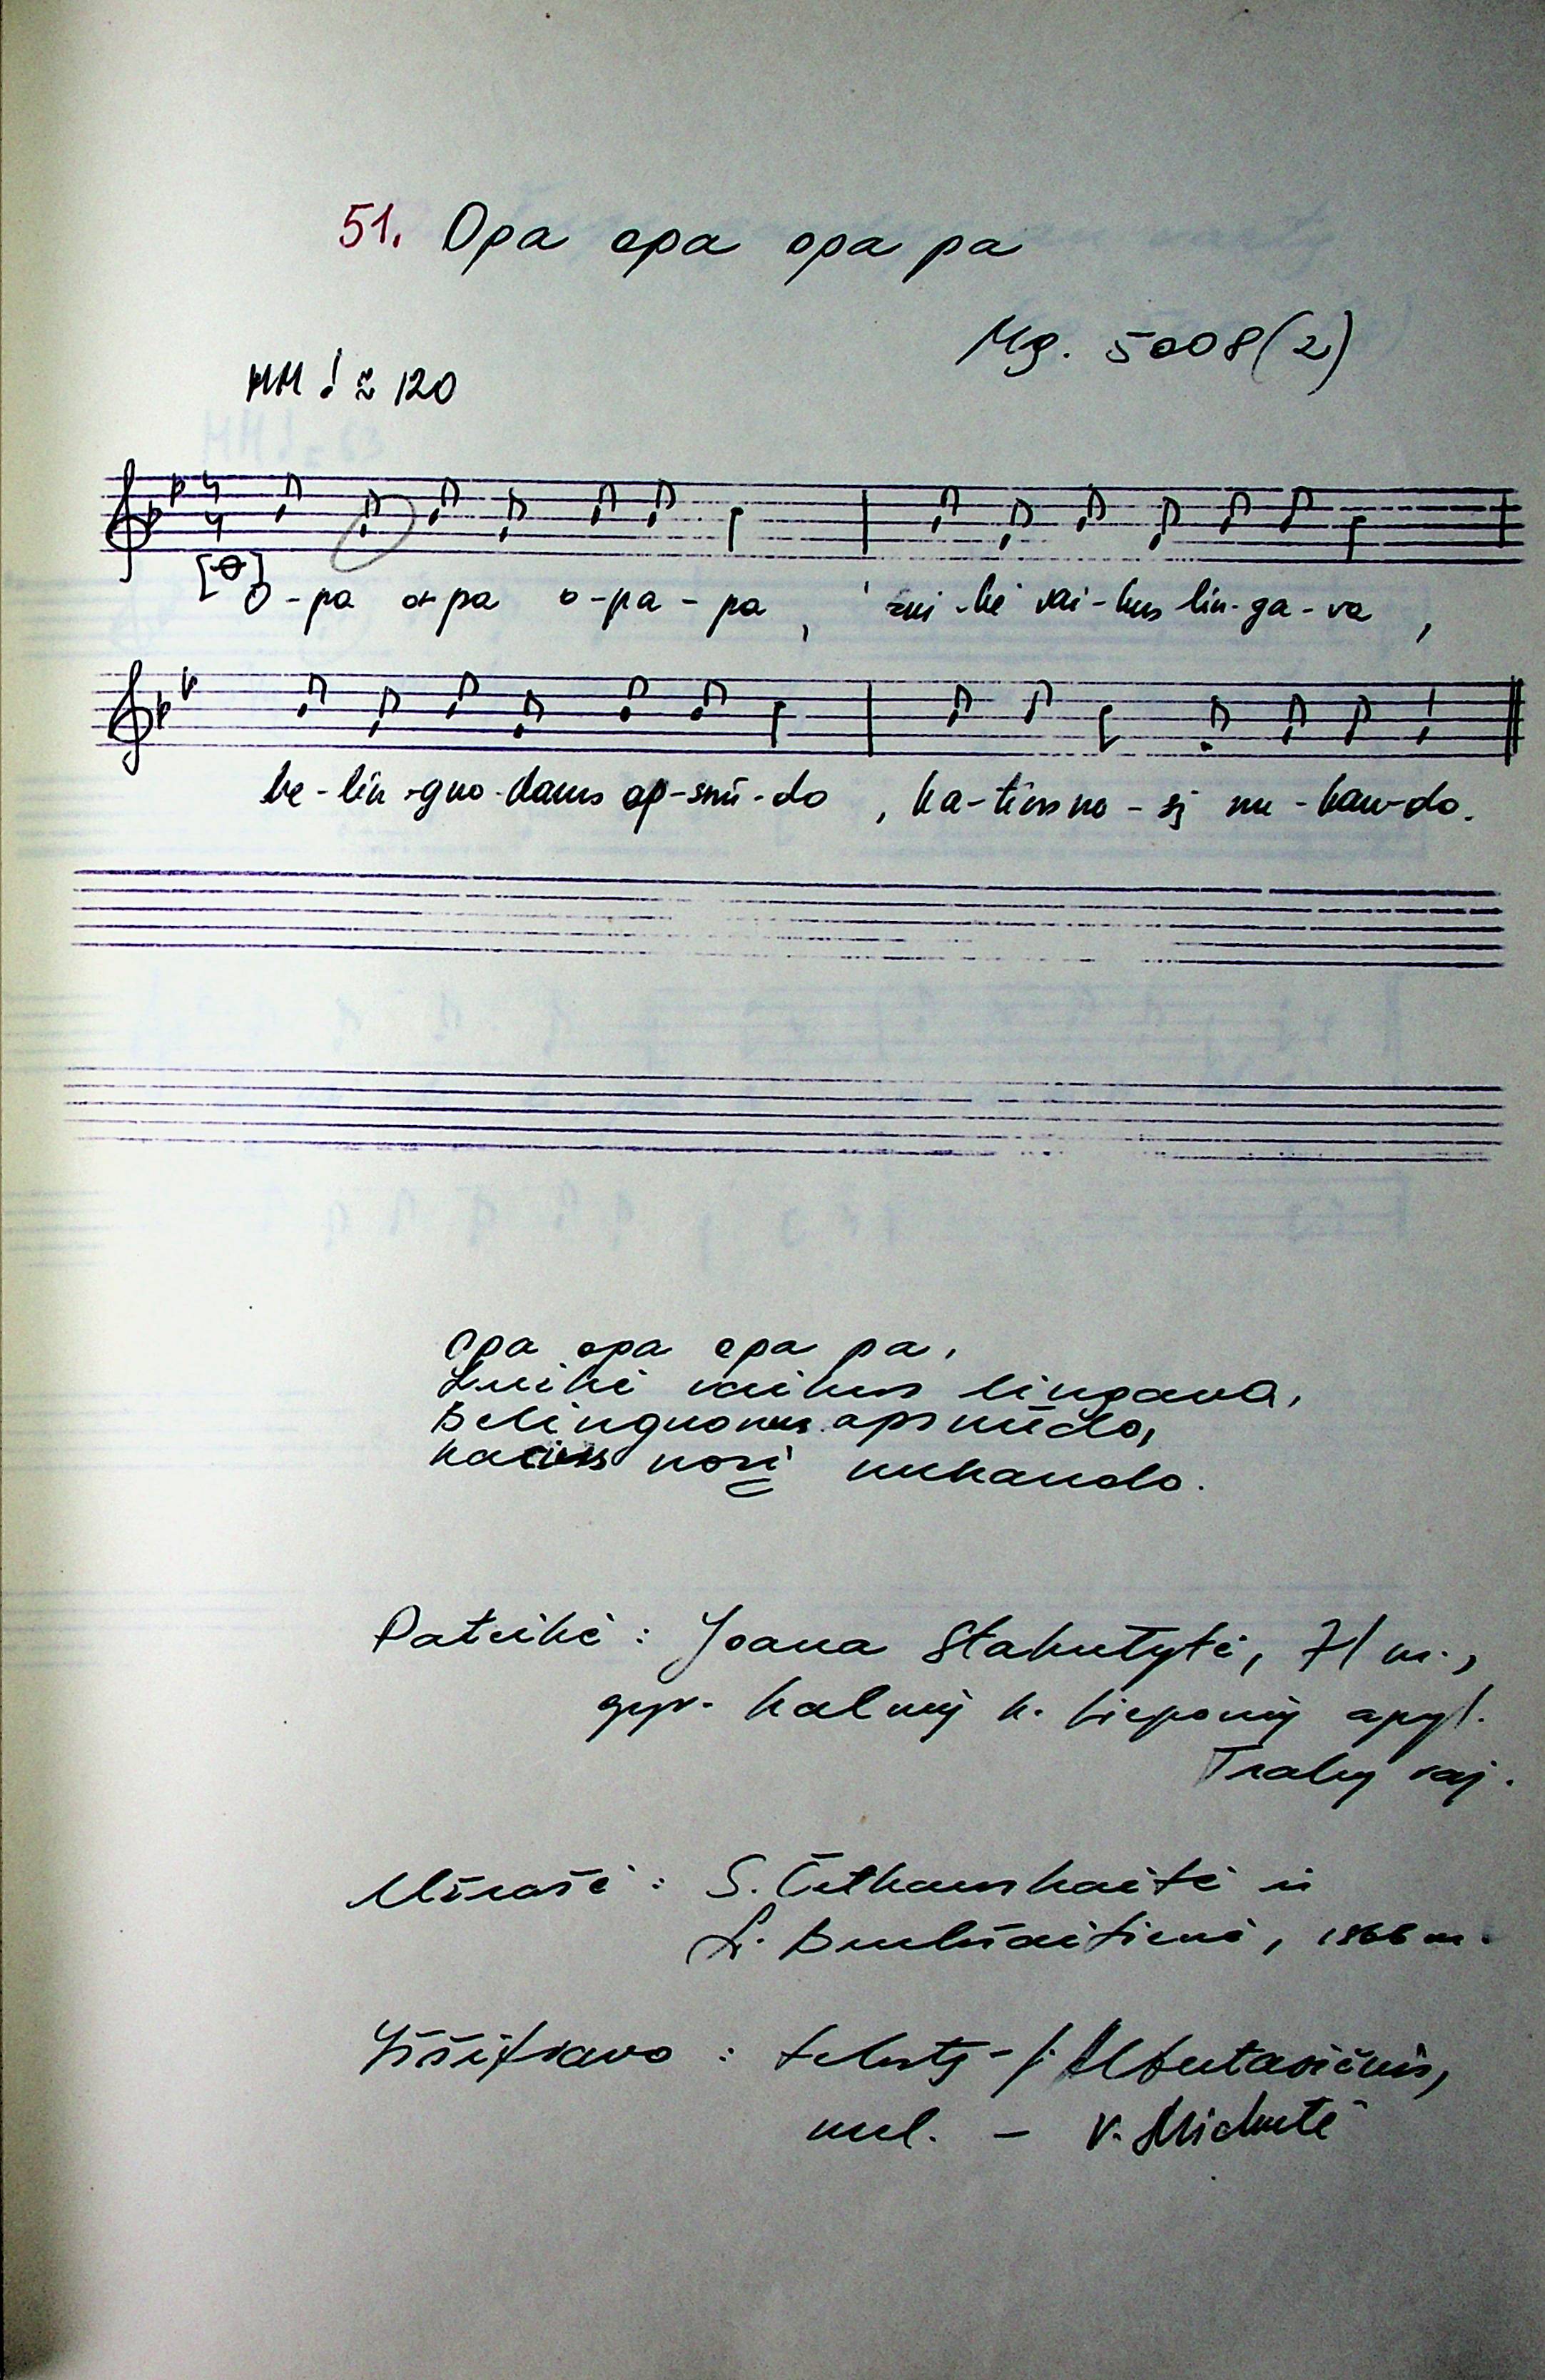 51. Opa opa opa pa
Mg. 5008(2)
MM ♩ ≈ 120
O-pa o-pa o-pa-pa, zui-kė vai-kus lin-ga-va,
be-lin-guo-dams ap-snū-do, ka-tins no-sį nu-kan-do.
Opa opa opa pa,
Zuikė vaikus lingava,
Belinguodams apsnūdo,
Katins nosį nukando.
Pateikė: Joana Stakutytė, 71 m.,
gyv. Kalnų k. Lieponių apyl.
Trakų raj.
Užrašė: S. ir
L. Burkšaitienė, 1966 m.
Iššifravo: tekstą -
mel. - V. Mickutė